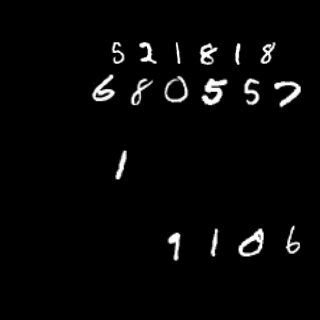 521818
680557
1
9106